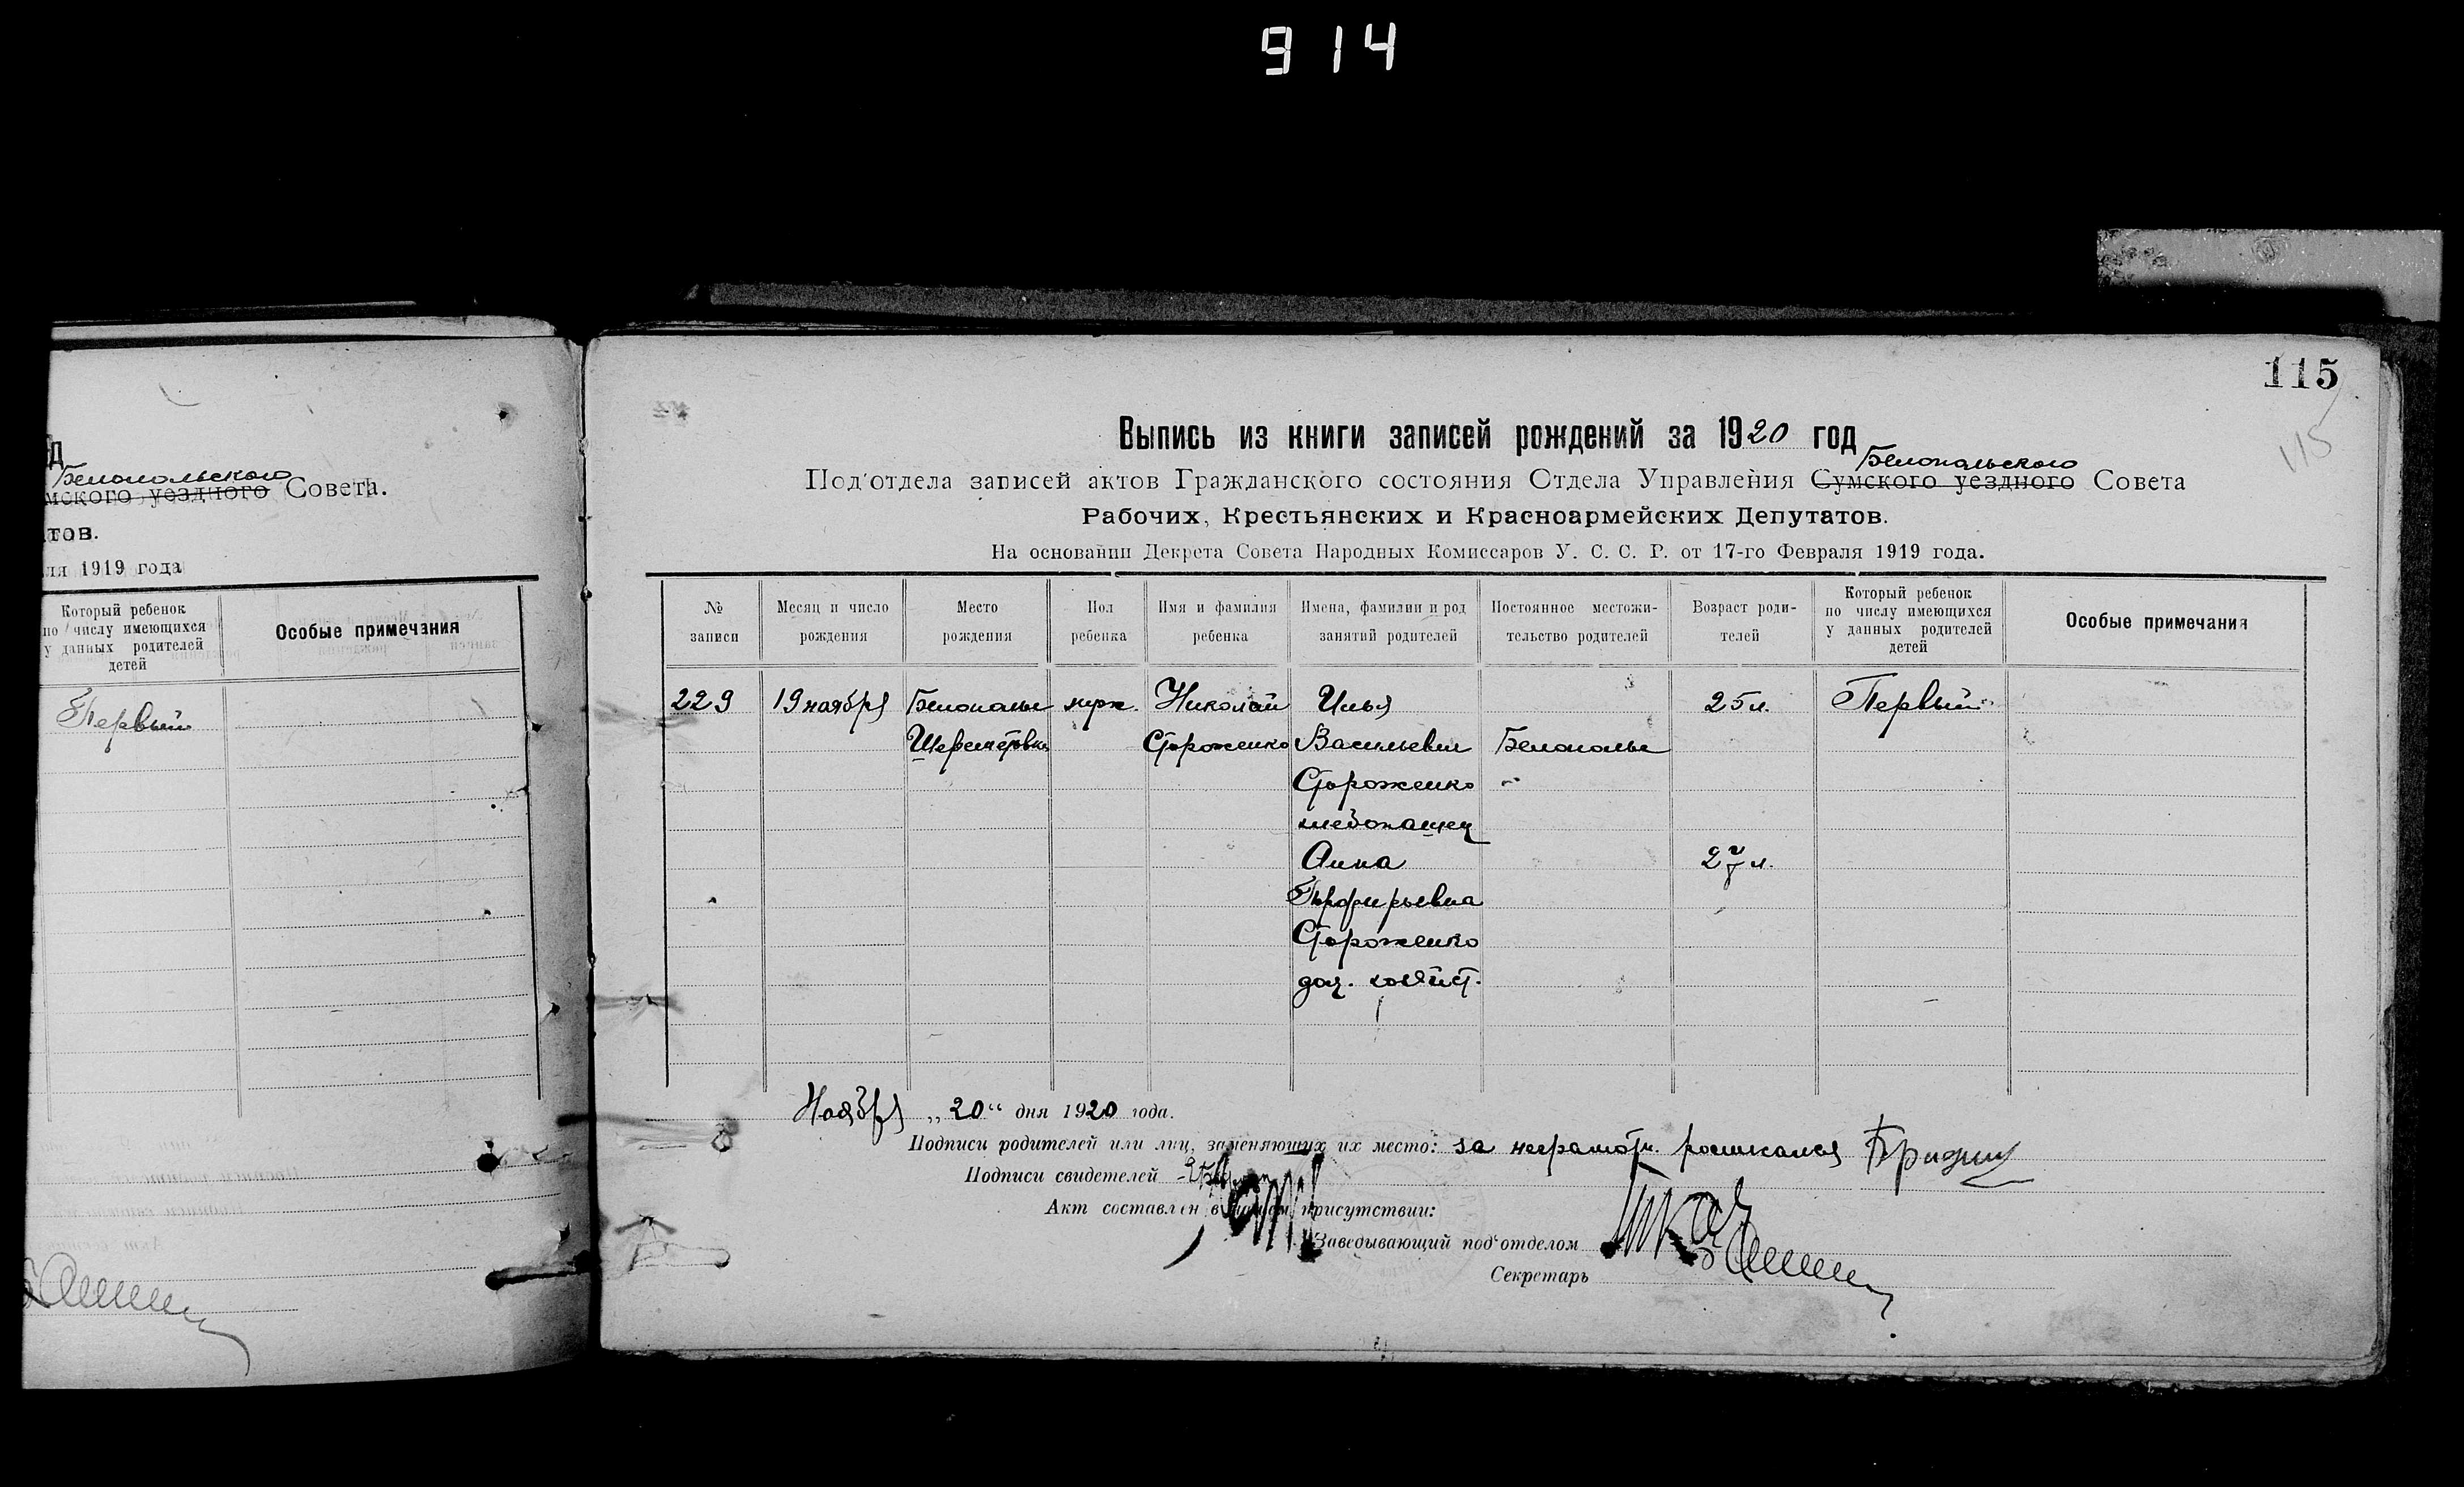 914
д
Белопольского
мского уездного Совета.
тов.
ля 1919 года
Который ребенок
по числу имеющихся
у данных родителей
детей
Особые примечания
Первый
115
115
Выпись из книги записей рождений за 1920 год
Белопольского
Под'отдела записей актов Гражданского состояния Отдела Управления Сумского уездного Совета
Рабочих, Крестьянских и Красноармейских Депутатов.
На основании Декрета Совета Народных Комиссаров У. С. С. Р. от 17-го Февраля 1919 года.
№ записи
Месяц и число рождения
Место рождения
Пол ребенка
Имя и фамилия ребенка
Имена, фамилии и род занятий родителей
Постоянное местожительство родителей
Возраст родителей
Который ребенок по числу имеющихся у данных родителей детей
Особые примечания
229 19 ноября Белополье муж. Николай Илья 25 л. Первый
Шереметовка Стороженко Васильевич Белополье
Стороженко -"-
хлебопашец
Анна 27 л.
Порфирьевна
Стороженко
дом. хозяйст.
Ноября „20“ дня 1920 года.
Подписи родителей или лиц, заменяющих их место: за неграмотн. росписался
Подписи свидетелей
Акт составлен в нашем присутствии:
Заведывающий под'отделом
Секретарь